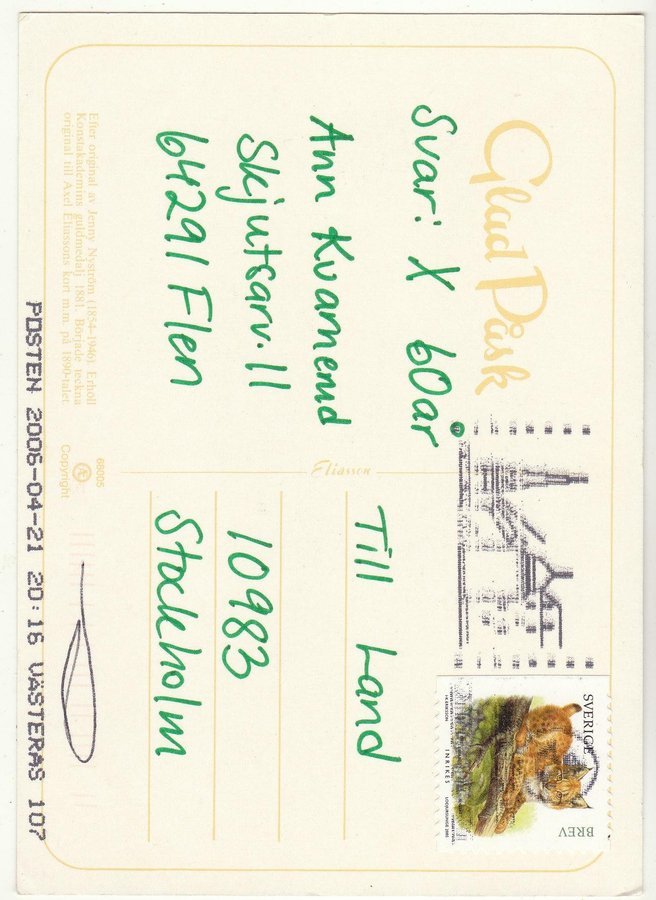 Glad Påsk
Svar: X 60år
Ann Kvarnemd
Skjutsarv. 11
64291 Flen
Till Land
10983
Stockholm
Eliasson
SVERIGE
BREV
INRIKES
Efter original av Jenny Nyström (1854-1946). Erhöll
Konstakademins guldmedalj 1881. Började teckna
original till Axel Eliassons kort m.m. på 1890-talet.
68005
Æ
Copyright
POSTEN 2006-04-21 20:16 VÄSTERÅS 107